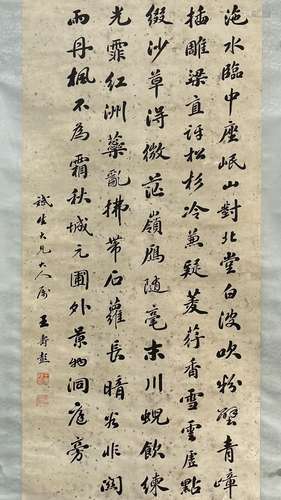 沱水臨中座岷山對北堂白波吹粉壁青嶂
插雕梁直訝松杉冷兼疑菱荇香雪雲虛點
綴沙草得微茫嶺鴈隨毫末川蜺飲練
光霏紅洲蘂亂拂帶石蘿長暗谷非關
雨丹楓不為霜秋城元圃外景物洞庭旁
誠生大兄大人屬 王壽彭